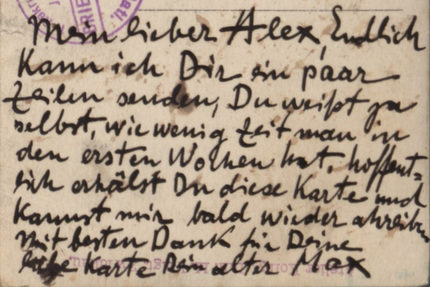 Mein lieber Alex, Endlich
kann ich Dir ein paar
Zeilen senden, Du weißt ja
selbst, wie wenig Zeit man in
den ersten Wochen hat, hoffent=
lich erhälst Du diese Karte und
kannst mir bald wieder schreiben
Mit besten Dank für Deine
liebe Karte Dein alter Max